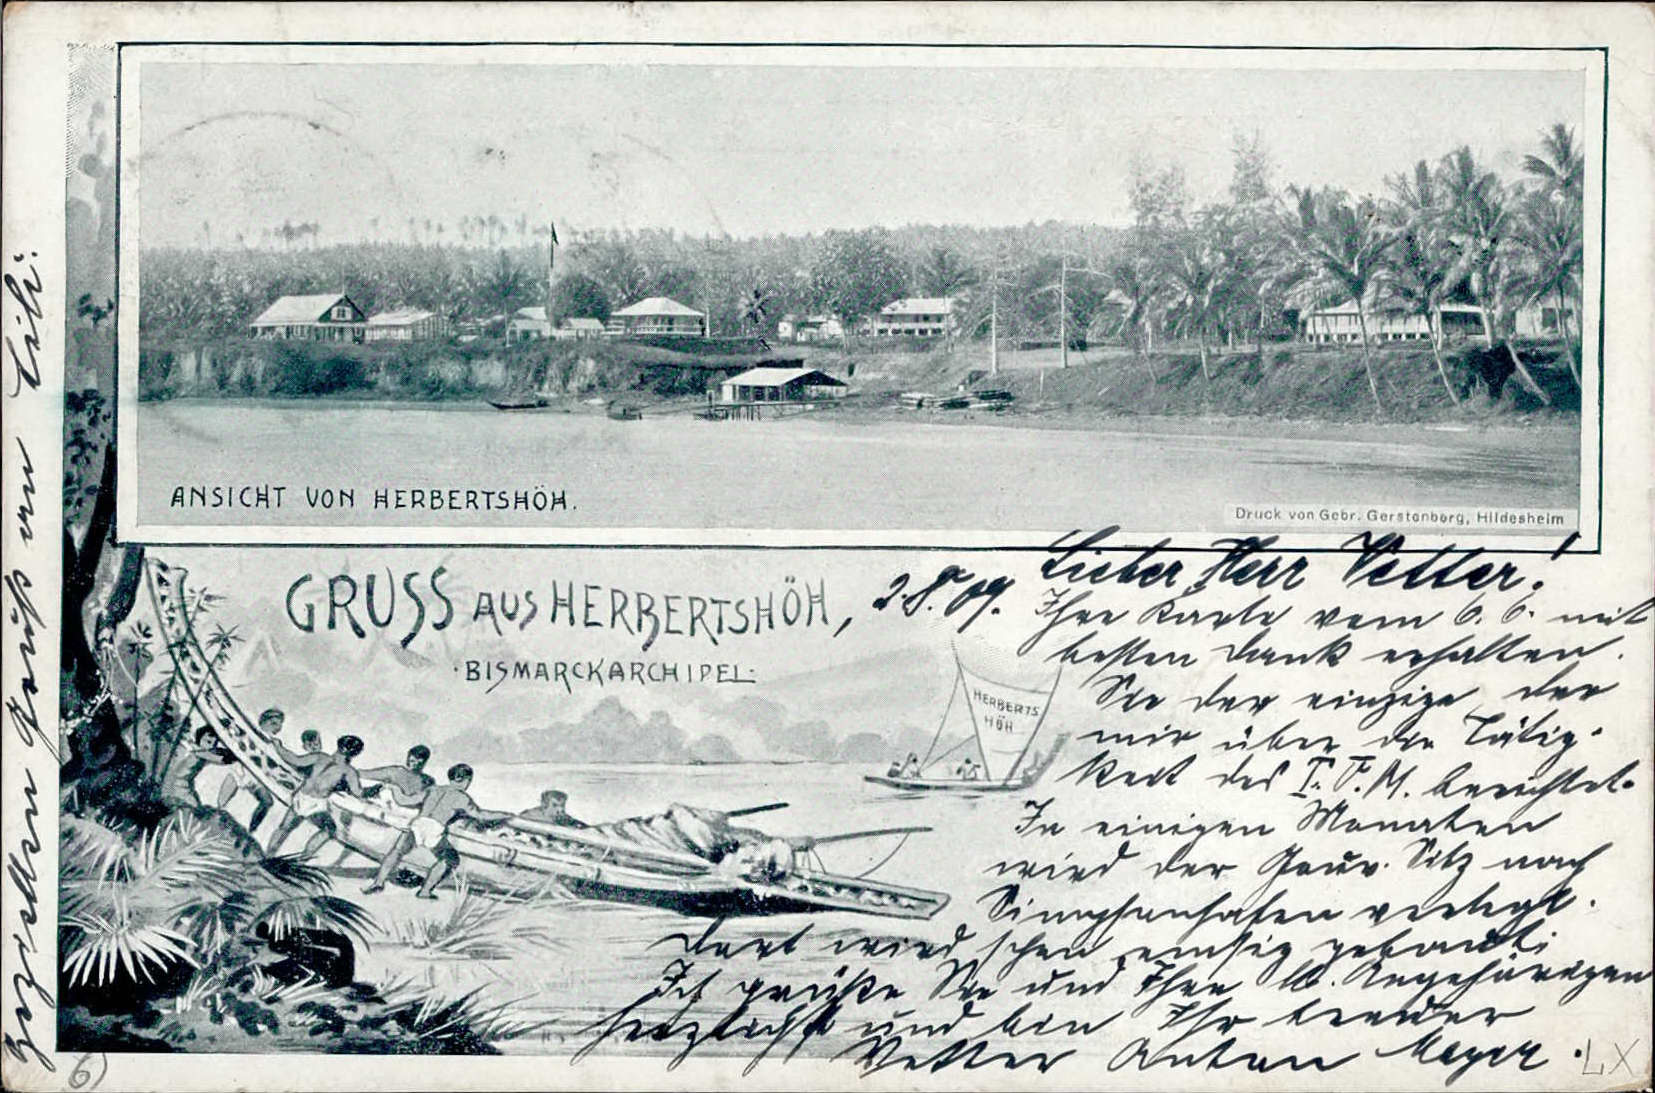 ANSICHT VON HERBERTSHÖH.
Druck von Gebr. Gerstenberg, Hildesheim
GRUSS AUS HERBERTSHÖH,
·BISMARCKARCHIPEL·
HERBERTS
HÖH
2.8.09. Lieber Herr Vetter!
Ihre Karte vom 6. 6. mit
besten Dank erhalten.
Sie der einzige der
mir über die Tätig-
keit des I. V. M. berichtet.
In einigen Monaten
wird der Gouv. Sitz nach
Simpsonhafen verlegt.
Dort wird schon emsig gebaut.
Ich grüße Sie und Ihre lb. Angehörigen
herzlichst und bin Ihr
Vetter Anton Meyer.
LX
6
Gruß von